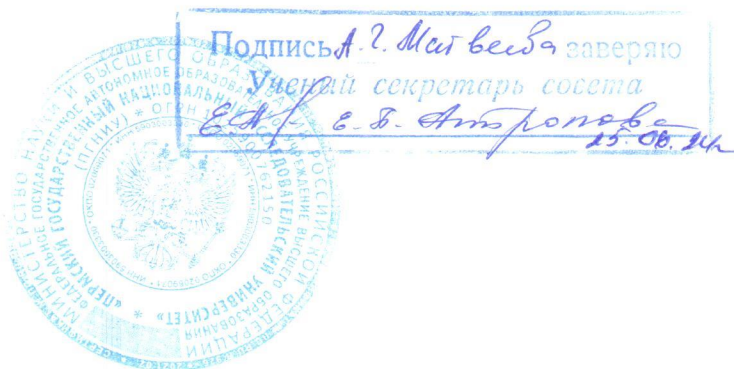 Подпись А. Г. Матвеева заверяю
Ученый секретарь совета
Е. Б. Антропова
25.06.24г
МИНИСТЕРСТВО НАУКИ И ВЫСШЕГО ОБРАЗОВАНИЯ РОССИЙСКОЙ ФЕДЕРАЦИИ
ФЕДЕРАЛЬНОЕ ГОСУДАРСТВЕННОЕ АВТОНОМНОЕ ОБРАЗОВАТЕЛЬНОЕ УЧРЕЖДЕНИЕ ВЫСШЕГО ОБРАЗОВАНИЯ
"ПЕРМСКИЙ ГОСУДАРСТВЕННЫЙ НАЦИОНАЛЬНЫЙ ИССЛЕДОВАТЕЛЬСКИЙ УНИВЕРСИТЕТ" *
(ПГНИУ) * ОГРН